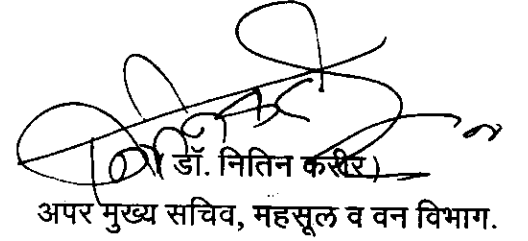 (डॉ. नितिन करीर)
अपर मुख्य सचिव, महसूल व वन विभाग.